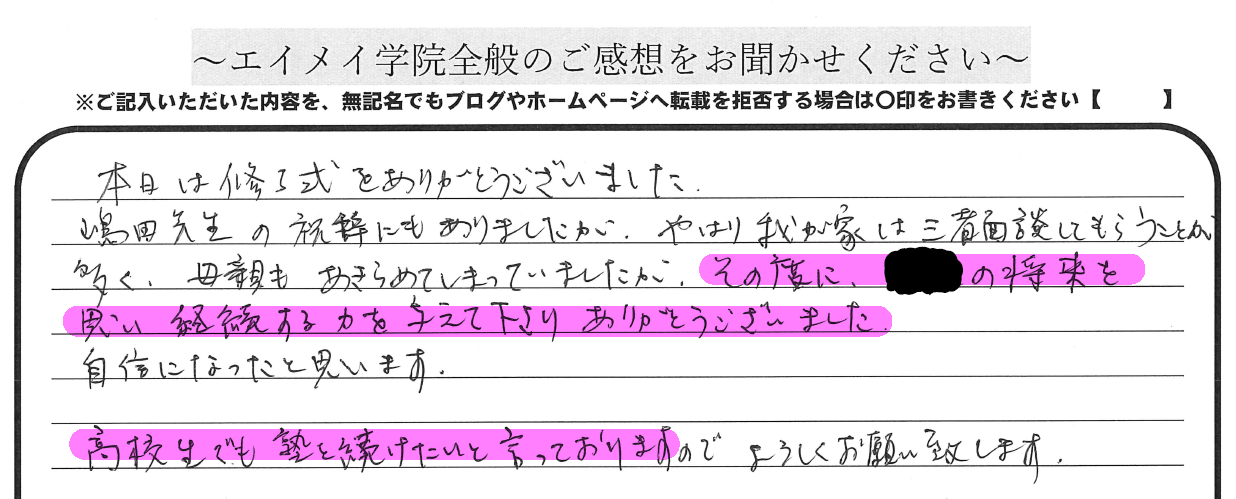 ～エイメイ学院全般のご感想をお聞かせください～
※ご記入いただいた内容を、無記名でもブログやホームページへ転載を拒否する場合は〇印をお書きください【　　　】
本日は修了式をありがとうございました.
嶋田先生の祝辞にもありましたが、やはり我が家は三者面談してもらうことが
多く、母親もあきらめてしまっていましたが、その度に、
の将来を
思い 経続する力を与えて下さりありがとうございました.
自信になったと思います.
高校生でも塾を続けたいと言っておりますのでよろしくお願い致します.